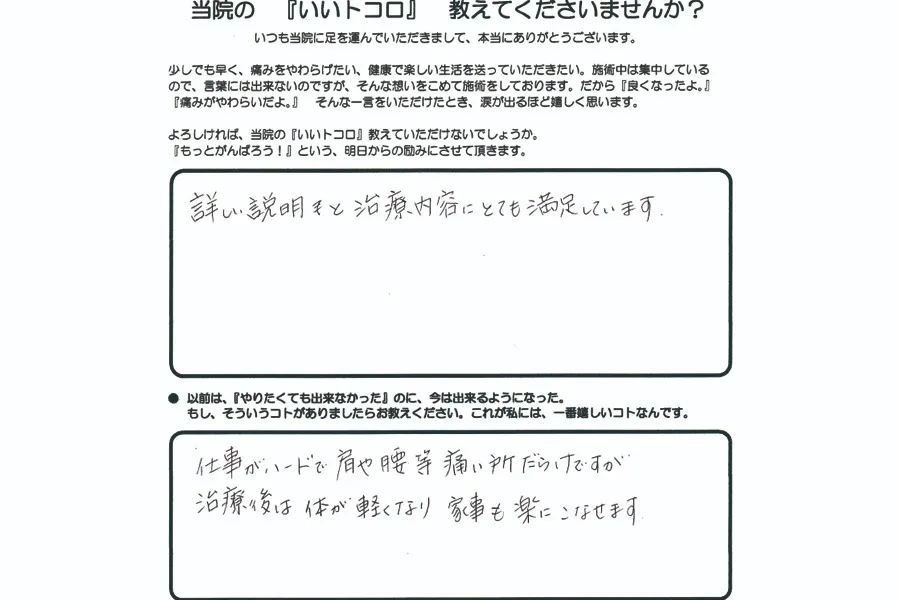 当院の 『いいトコロ』 教えてくださいませんか？
いつも当院に足を運んでいただきまして、本当にありがとうございます。
少しでも早く、痛みをやわらげたい、健康で楽しい生活を送っていただきたい。施術中は集中している
ので、言葉には出来ないのですが、そんな想いをこめて施術をしております。だから『良くなったよ。』
『痛みがやわらいだよ。』 そんな一言をいただけたとき、涙が出るほど嬉しく思います。
よろしければ、当院の『いいトコロ』教えていただけないでしょうか。
『もっとがんばろう！』という、明日からの励みにさせて頂きます。
詳しい説明きと治療内容にとても満足しています.
● 以前は、『やりたくても出来なかった』のに、今は出来るようになった。
もし、そういうコトがありましたらお教えください。これが私には、一番嬉しいコトなんです。
仕事がハードで肩や腰等痛い所だらけですが
治療後は体が軽くなり家事も楽にこなせます